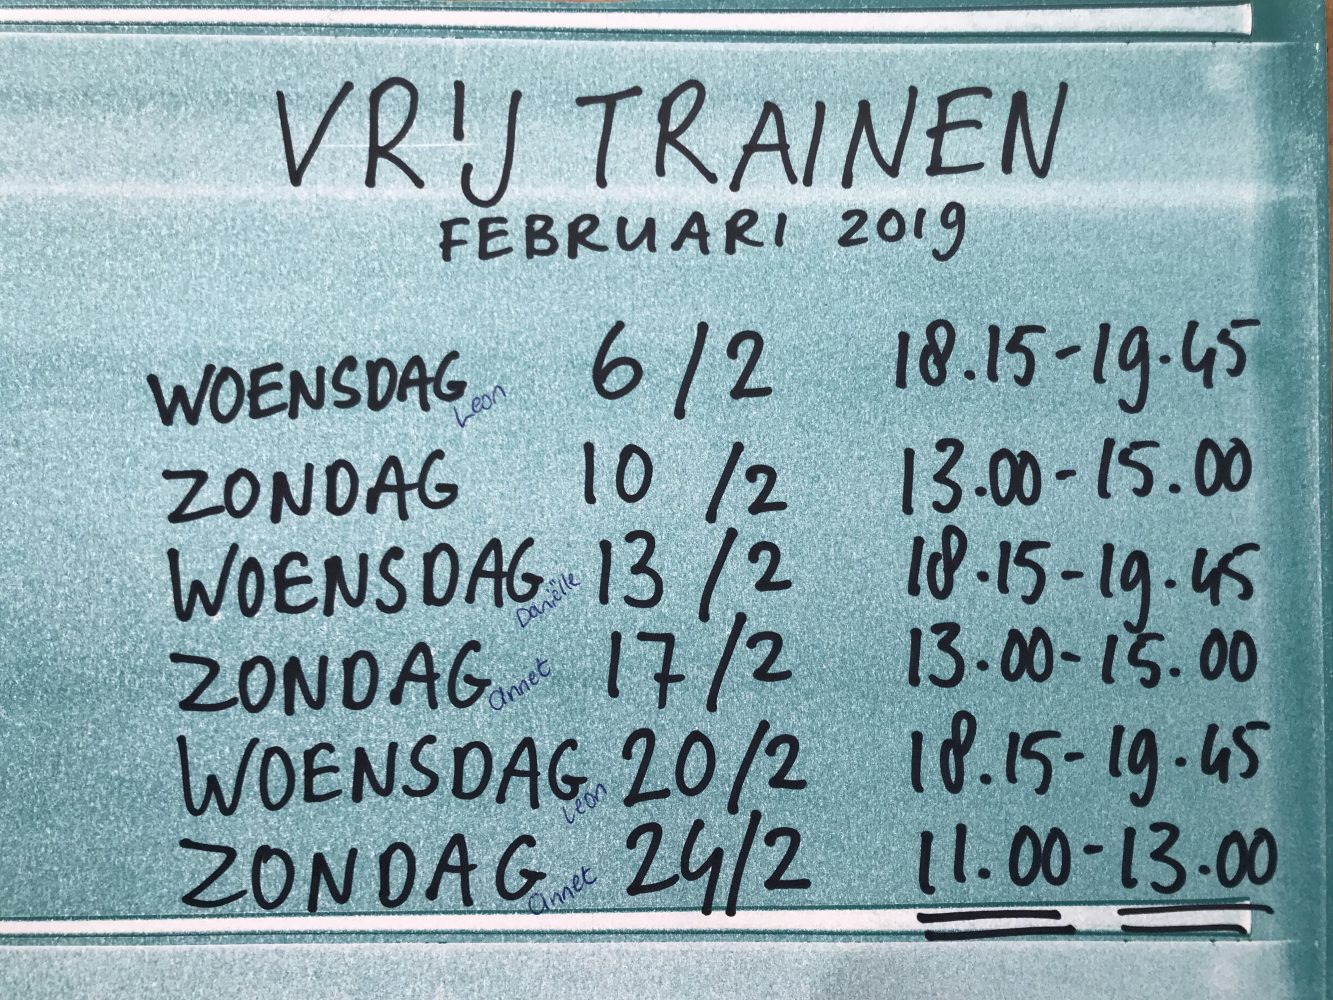 VRIJ TRAINEN
FEBRUARI 2019
WOENSDAG Leon 6/2 18.15-19.45
ZONDAG 10/2 13.00-15.00
WOENSDAG Daniëlle 13/2 18.15-19.45
ZONDAG annet 17/2 13.00-15.00
WOENSDAG Leon 20/2 18.15-19.45
ZONDAG annet 24/2 11.00-13.00